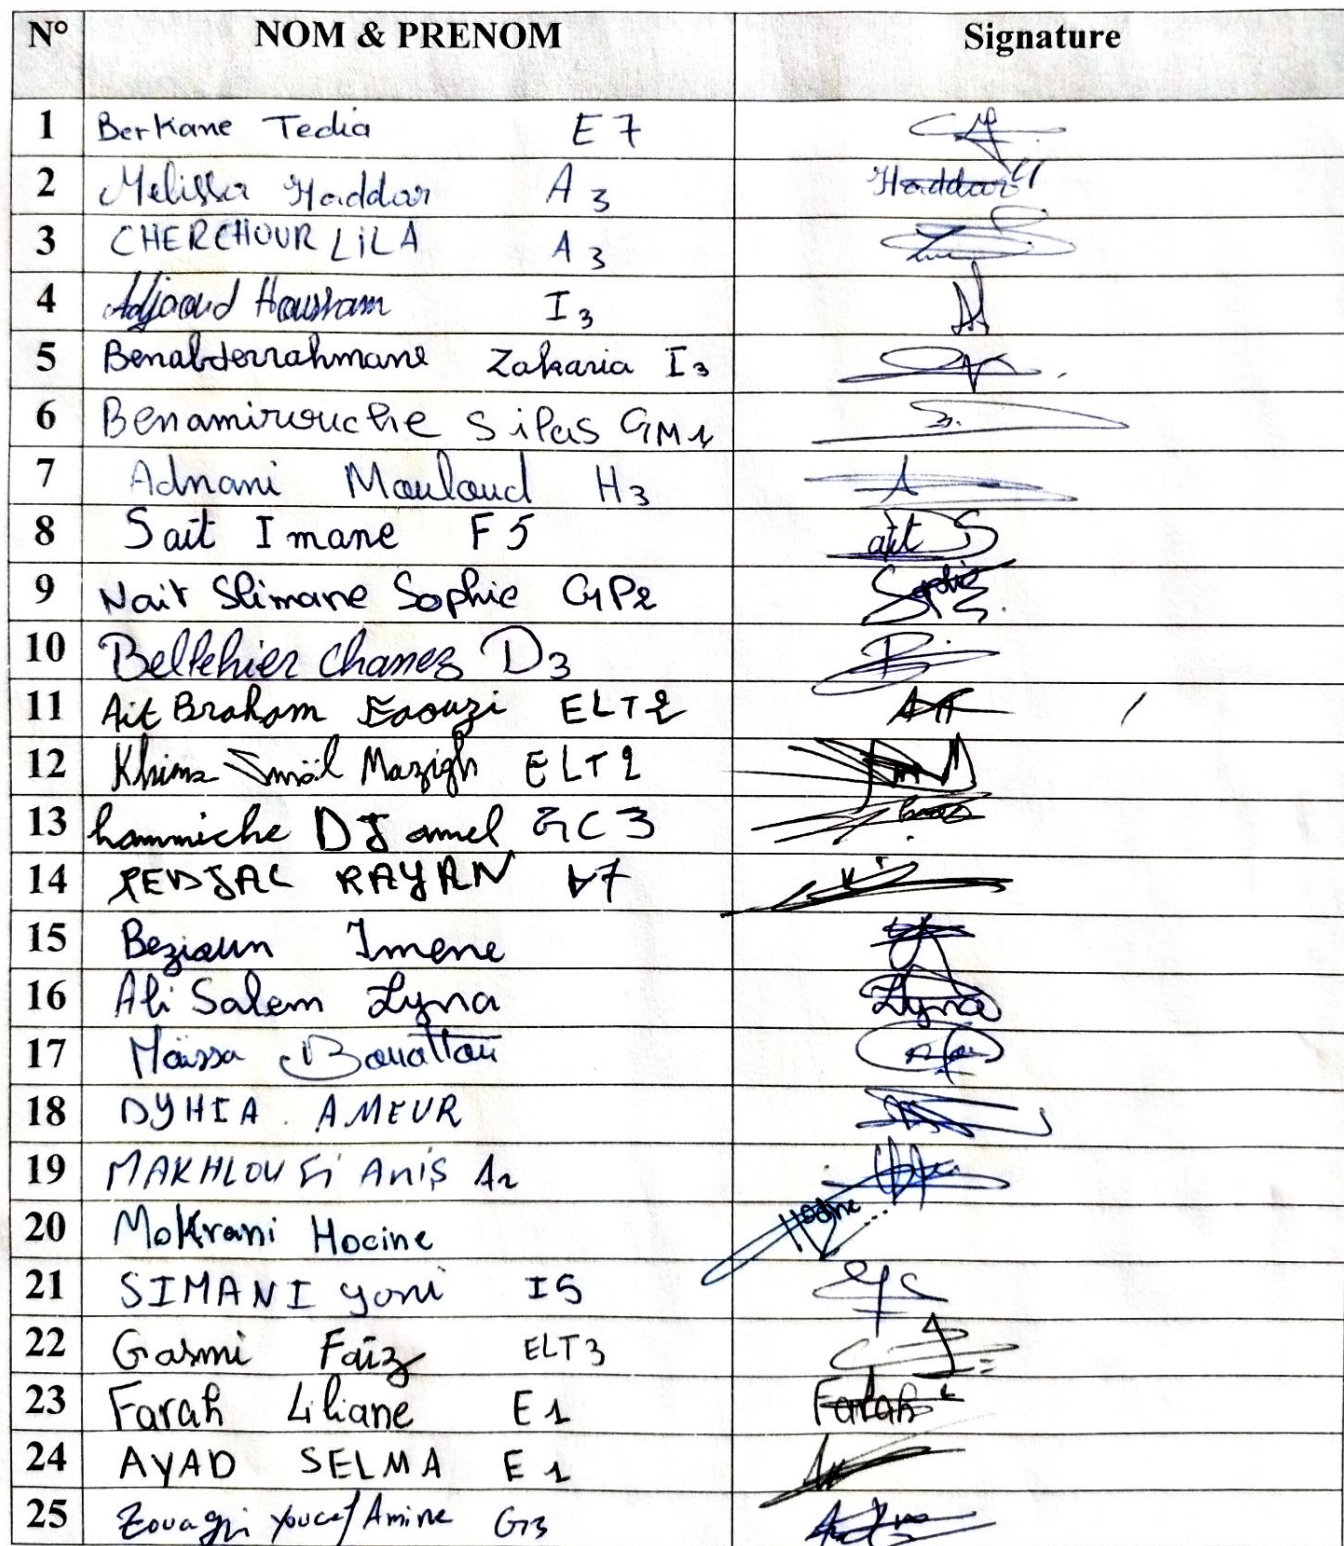 N° NOM & PRENOM Signature
1 Berkane Tedia E7
2 Melissa Haddar A3 Haddar
3 CHERCHOUR LiLA A3
4 Adjaoud Houssam I3
5 Benabderrahmane Zakaria I3
6 Benamirouche Silas GM1
7 Adnani Mouloud H3 A
8 Sait Imane F5 ait S
9 Nait Slimane Sophie GP2 Sophie
10 Belkhier chanez D3 B
11 Ait Braham Faouzi ELT2
12 Khima Smail Mazigh ELT2
13 hammiche DJamel GC3
14 REDJAL RAYAN
15 Bezioun Imene
16 Ali Salem Lyna Lyna
17 Maissa Bouattou
18 DYHIA AMEUR
19 MAKHLOUFi Anis A2
20 Mokrani Hocine Hocine
21 SIMANI yoni I5
22 Gasmi Faïz ELT3
23 Farah Liliane E1 Farah L
24 AYAD SELMA E1
25 Zouagui youcef Amine G3